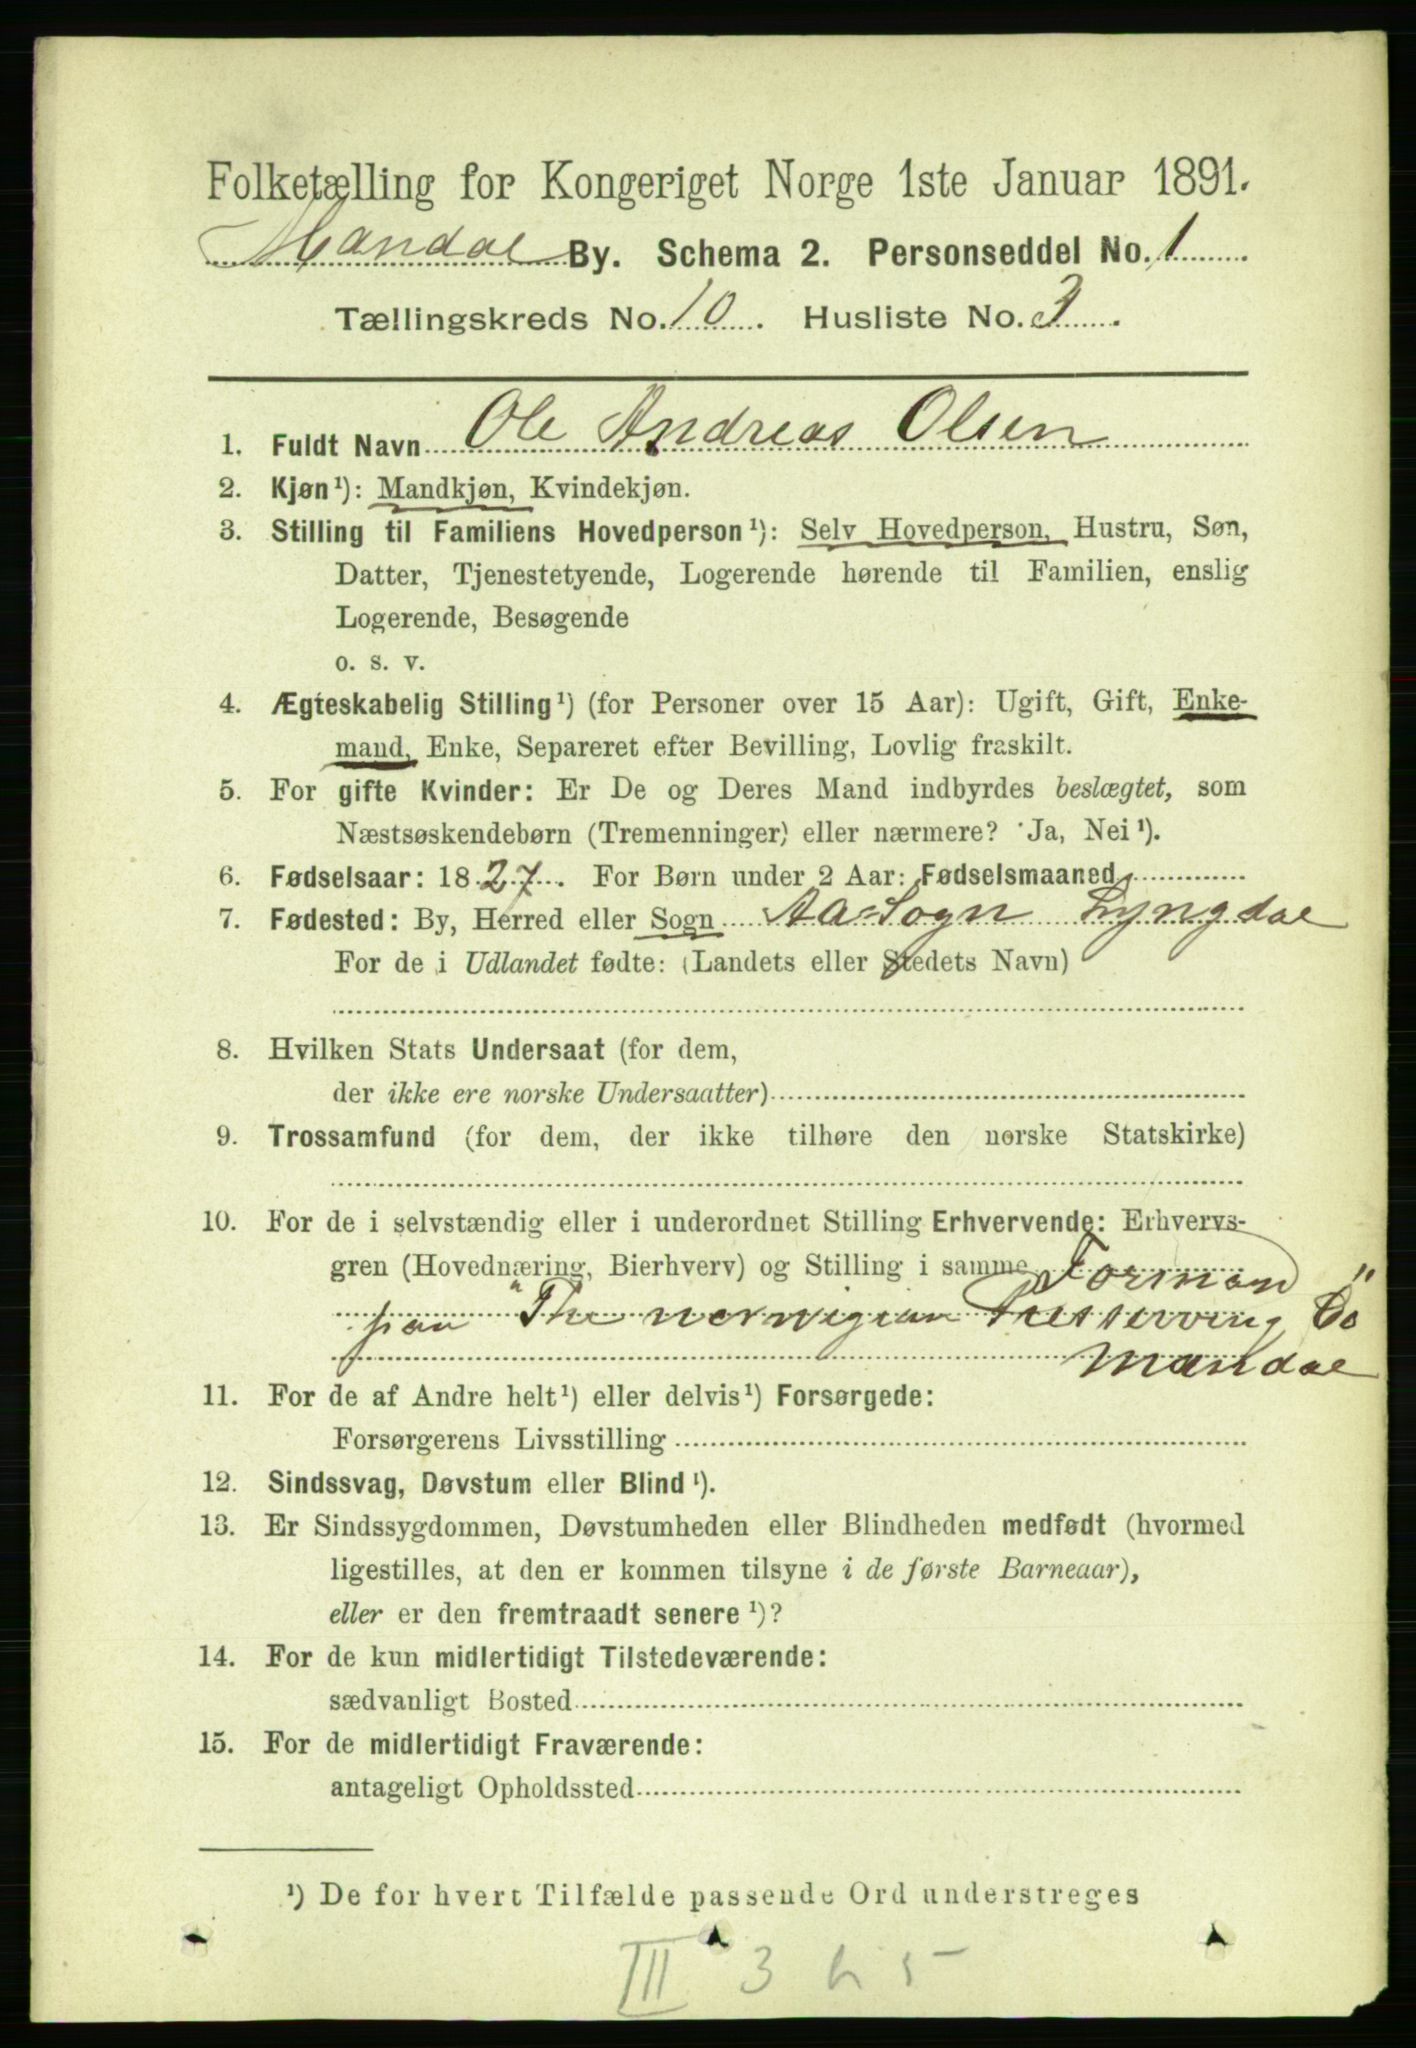 Folketælling for Kongeriget Norge 1ste Januar 1891.
Mandal By. Schema 2. Personseddel No. 1
Tællingskreds No. 10. Husliste No. 3.
1. Fuldt Navn Ole Andreas Olsen
2. Kjøn¹): Mandkjøn, Kvindekjøn.
3. Stilling til Familiens Hovedperson¹): Selv Hovedperson, Hustru, Søn,
Datter, Tjenestetyende, Logerende hørende til Familien, enslig
Logerende, Besøgende
o. s. v.
4. Ægteskabelig Stilling¹) (for Personer over 15 Aar): Ugift, Gift, Enke-
mand, Enke, Separeret efter Bevilling, Lovlig fraskilt.
5. For gifte Kvinder: Er De og Deres Mand indbyrdes beslægtet, som
Næstsøskendebørn (Tremenninger) eller nærmere? Ja, Nei¹).
6. Fødselsaar: 1827. For Børn under 2 Aar: Fødselsmaaned
7. Fødested: By, Herred eller Sogn Aa-Sogn Lyngdal
For de i Udlandet fødte: (Landets eller Stedets Navn)
8. Hvilken Stats Undersaat (for dem,
der ikke ere norske Undersaatter)
9. Trossamfund (for dem, der ikke tilhøre den norske Statskirke)
10. For de i selvstændig eller i underordnet Stilling Erhvervende: Erhvervs-
gren (Hovednæring, Bierhverv) og Stilling i samme Formand
paa "The norwegian Preserving Co"
Mandal
11. For de af Andre helt¹) eller delvis¹) Forsørgede:
Forsørgerens Livsstilling
12. Sindssvag, Døvstum eller Blind¹).
13. Er Sindssygdommen, Døvstumheden eller Blindheden medfødt (hvormed
ligestilles, at den er kommen tilsyne i de første Barneaar),
eller er den fremtraadt senere¹)?
14. For de kun midlertidigt Tilstedeværende:
sædvanligt Bosted
15. For de midlertidigt Fraværende:
antageligt Opholdssted
¹) De for hvert Tilfælde passende Ord understreges
III 3 h 5